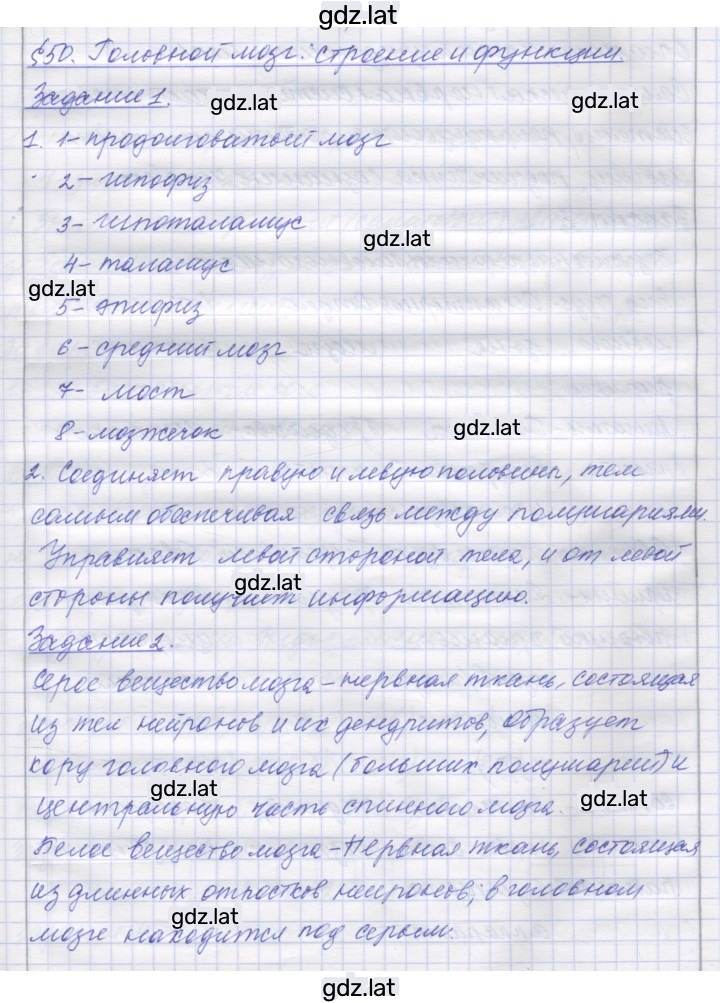 gdz.lat
§50. Головной мозг: строение и функции.
Задание 1.
gdz.lat
gdz.lat
1. 1- продолговатый мозг
2- гипофиз
3- гипоталамус
gdz.lat
4- таламус
gdz.lat
5- эпифиз
6- средний мозг
7- мост
8- мозжечок
gdz.lat
2. Соединяет правую и левую половины, тем
самым обеспечивая связь между полушариями.
Управляет левой стороной тела, и от левой
gdz.lat
стороны получает информацию.
Задание 2.
Серое вещество мозга - нервная ткань, состоящая
из тел нейронов и их дендритов, образует
кору головного мозга (больших полушарий) и
gdz.lat
gdz.lat
центральную часть спинного мозга.
Белое вещество мозга - Нервная ткань, состоящая
из длинных отростков нейронов; в головном
gdz.lat
мозге находится под серым.
gdz.lat